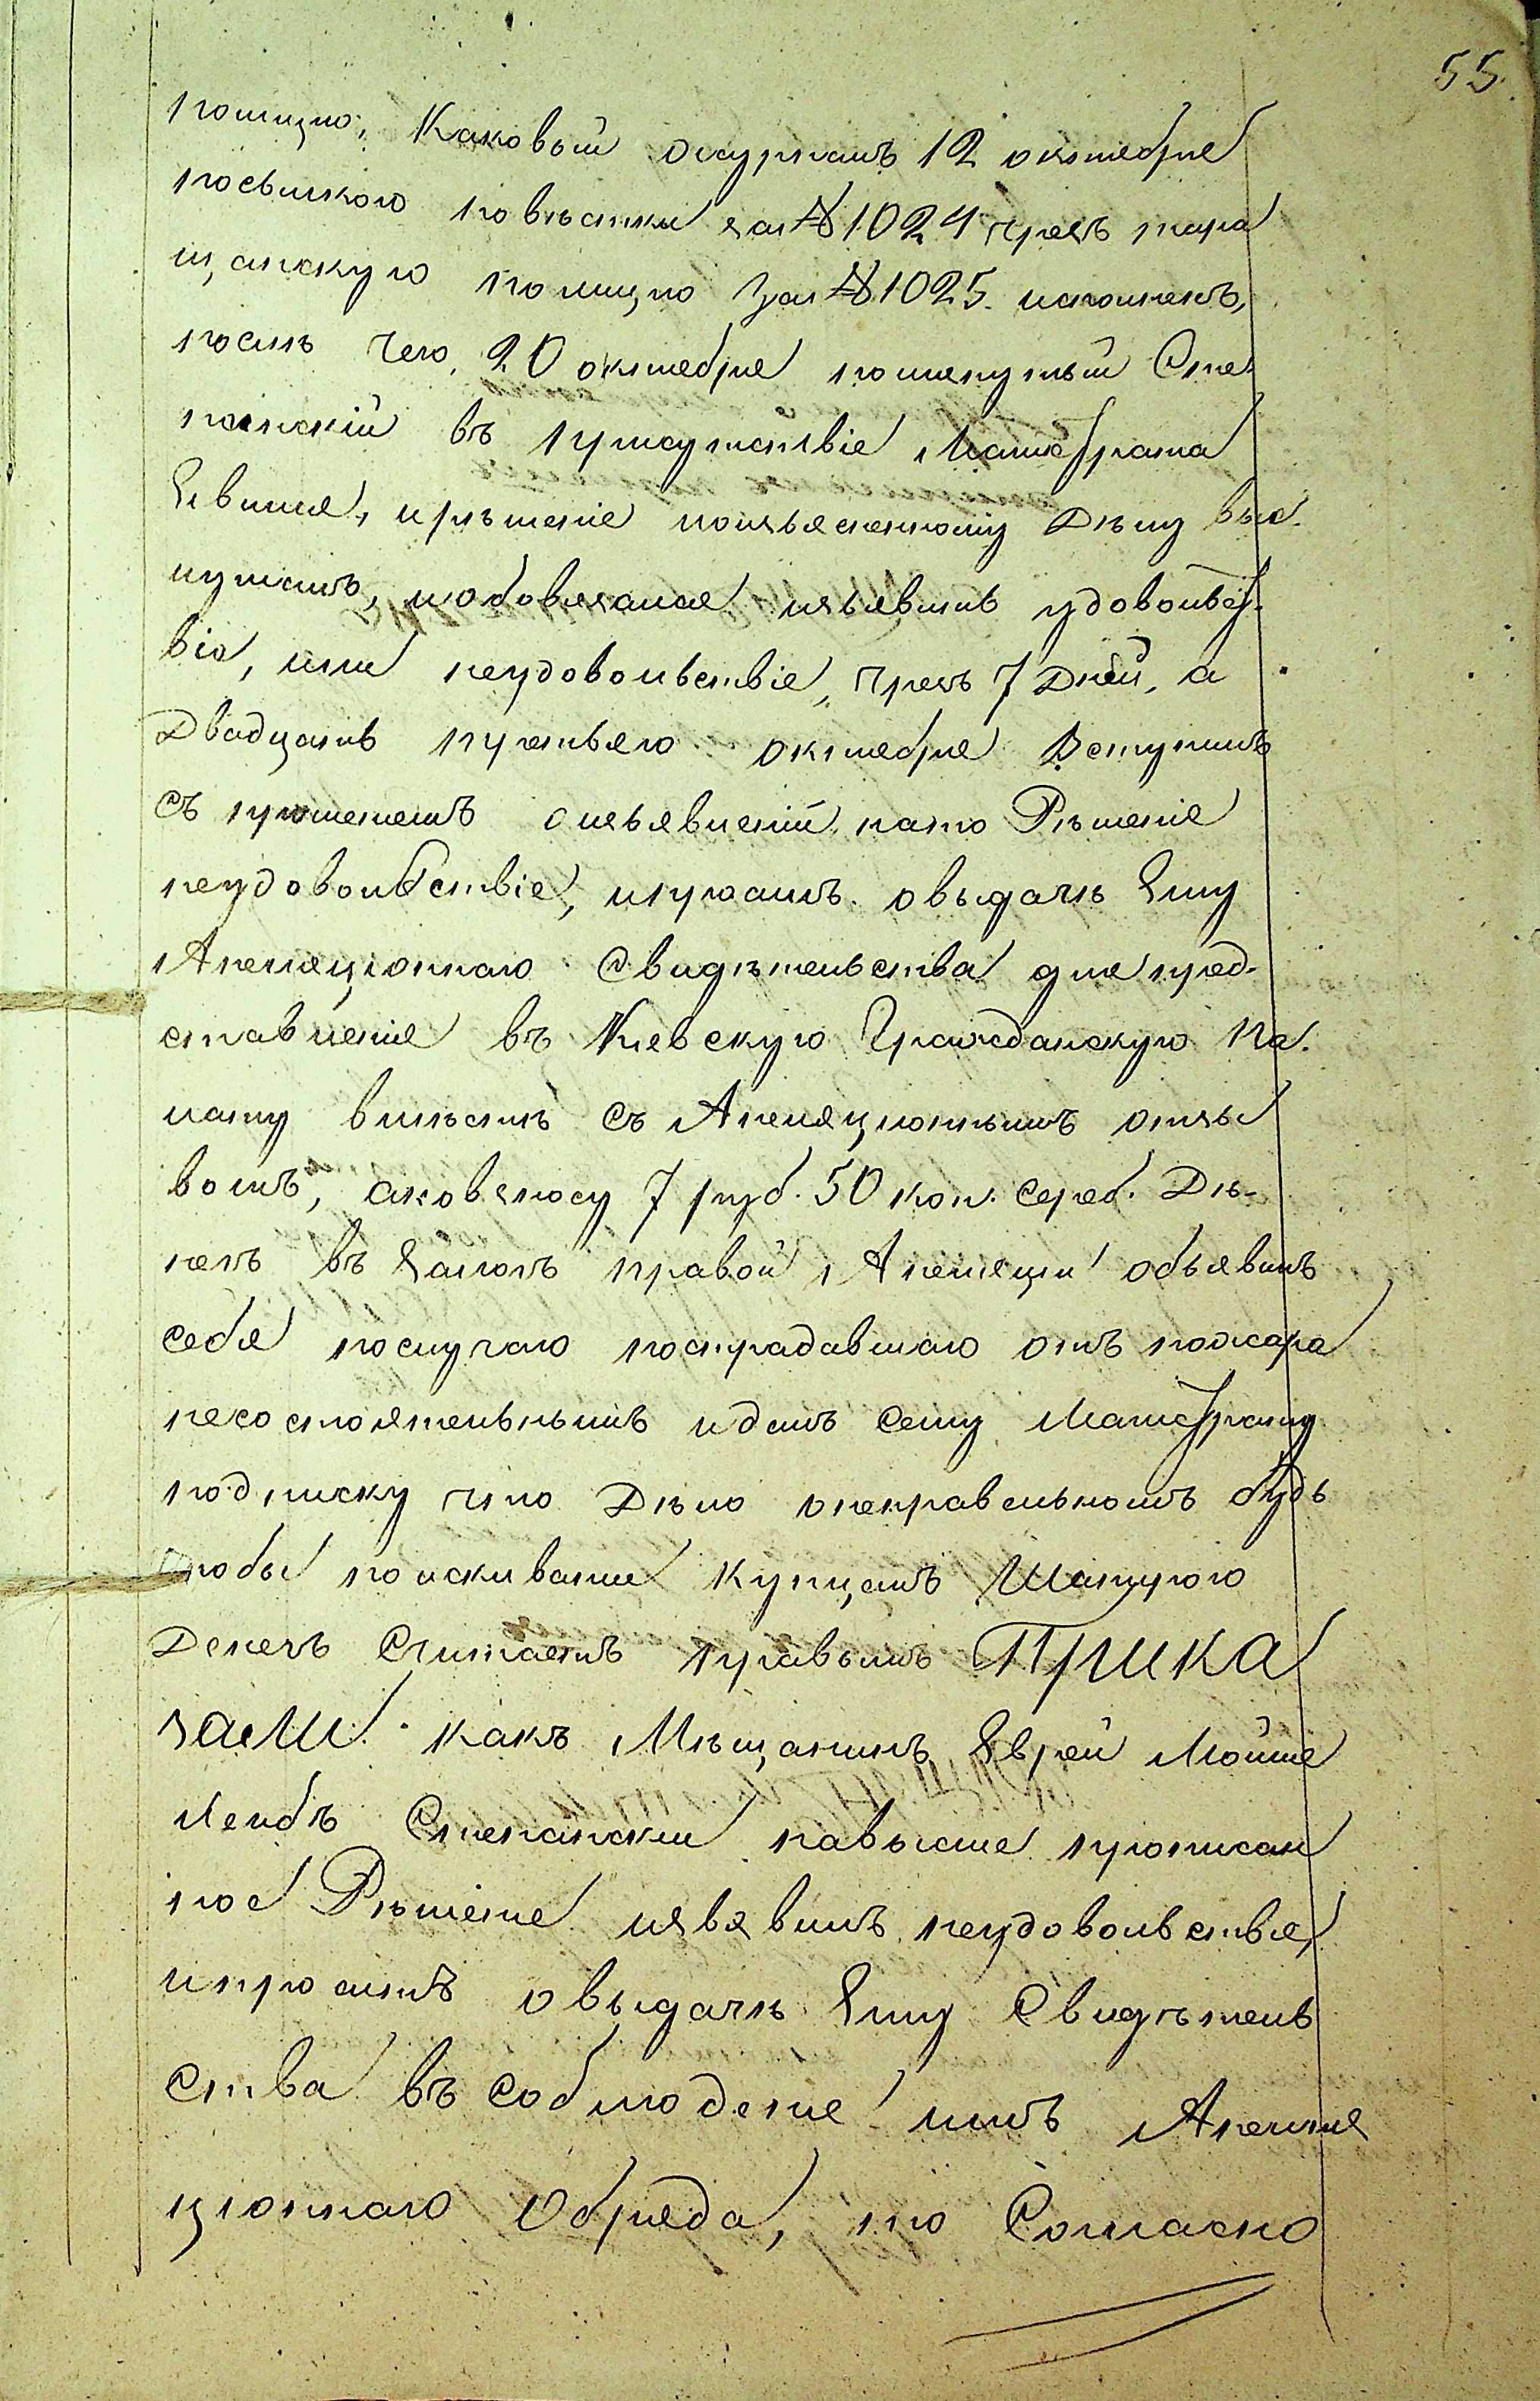 55.
полицію, Каковый осурпатъ 12 октября
посылкою повѣстки за № 1024 чрезъ тара
щанскую полицію за № 1025. исполненъ,
послѣ чего, 20 октября помянутый Сте-
панскій въ присутствіе Магистрата
Явился, и рѣшеніе поизъясненному Дѣлу выс-
лушалъ, и обовязался изъявить удовольст-
віе, или неудовольствіе, чрезъ 7 Дней, а
Двадцать третьяго октября Вступилъ
съ прошеніемъ о изъявленіи нато Рѣшеніе
неудовольствіе, и просилъ овыдачѣ Ему
Апеляціоннаго Свидѣтельства для пред-
ставленія въ Кіевскую Гражданскую Па-
лату вмѣстѣ съ Апеляціоннымъ отзы
вомъ, а ковзносу 7 руб. 50 коп. сереб. Дѣ-
негъ въ Залогъ правой Апеляціи объявилъ
себя послучаю пострадавшаго отъ пожара
несостоятельнымъ и далъ Сему Магистрату
подписку что Дѣло о неправельномъ будь
тобы поискиваніи купцемъ Шапирою
Денегъ Считаетъ правымъ ПРИКА
ЗАЛИ. какъ Мѣщанинъ Еврей Мойше
Лейбъ Степанскій навысше прописан
ное Рѣшеніе изъявилъ неудовольствіе,
и проситъ овыдачѣ Ему Свидѣтель
ства въ Соблюденіе имъ Апеля
ціоннаго Обряда, то Согласно